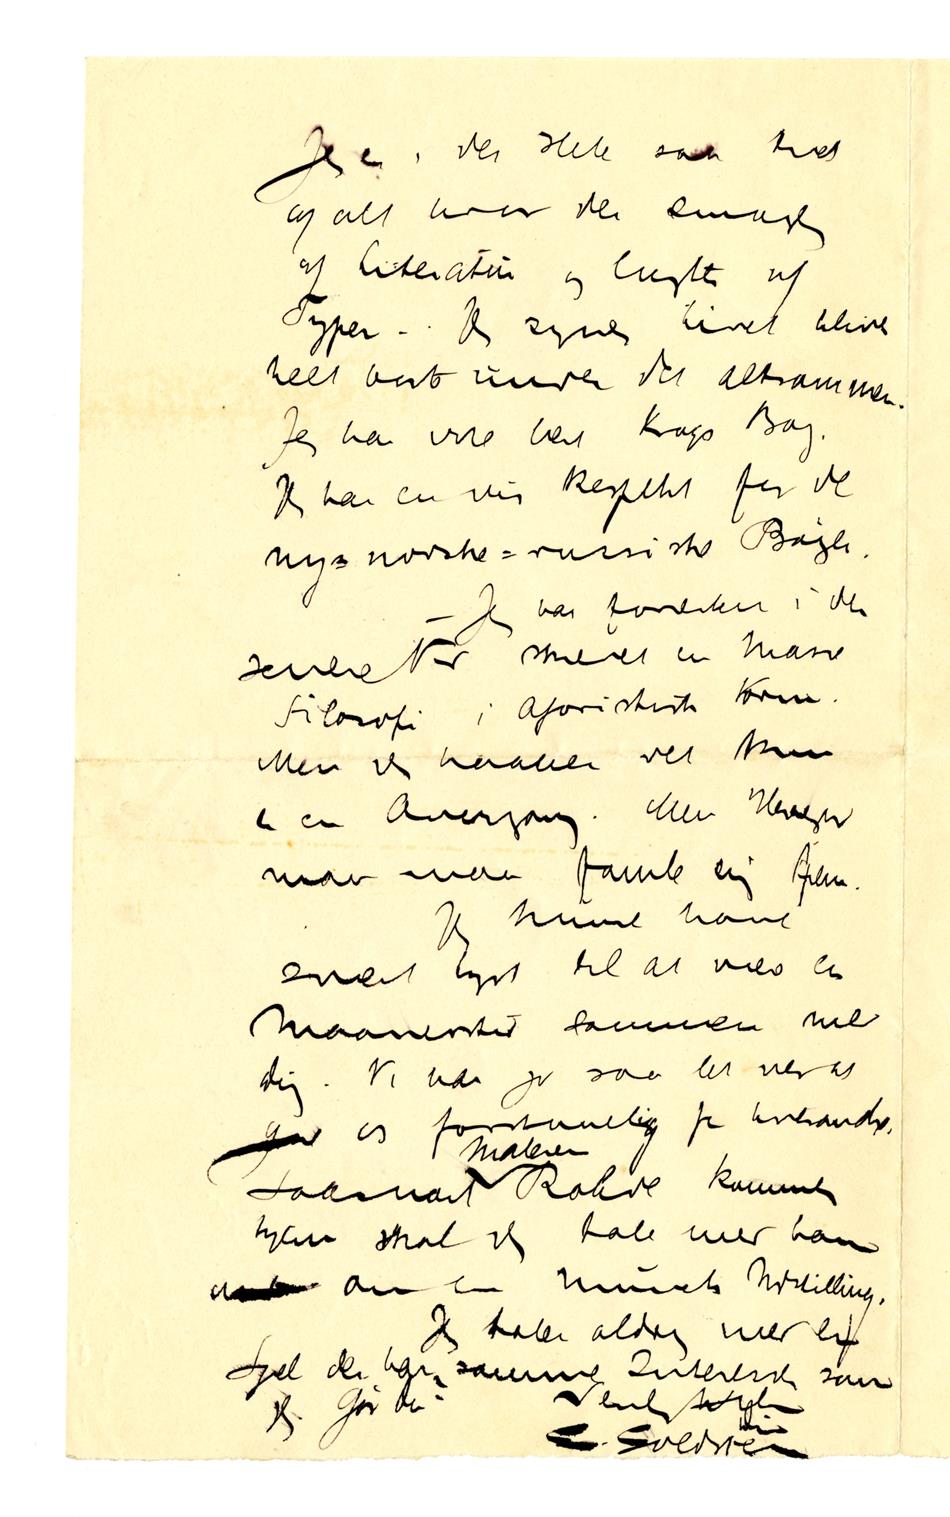 Jeg er i det Hele saa ked
af alt hvor der smager
af Literatur og lugter af
Typer - . Jeg synes Livet bliver
helt borte under det altsammen.
Jeg har ikke læst Krags Bog.
Jeg har en vis Respekt for de
ny=norske=russiske Bøger.
— Jeg har forresten i den
senere Tid skrevet en Masse
Filosofi i aforistisk Form.
Men jeg haaber det kun
er en Overgang. Men
maa man famle sig frem.
Jeg kunde have
svært Lyst til at være en
Maanedstid sammen med
dig. Vi har jo saa let ved at
gøre os forstaaelig for hverandre.
Saasnart Maleren Rohde kommer
hjem skal jeg tale med ham
om en Udstilling.
Jeg taler aldrig med en
Sjæl der har samme Interesser som
jeg. Gør du?
Venlig Hilsen
din
E. Goldstein